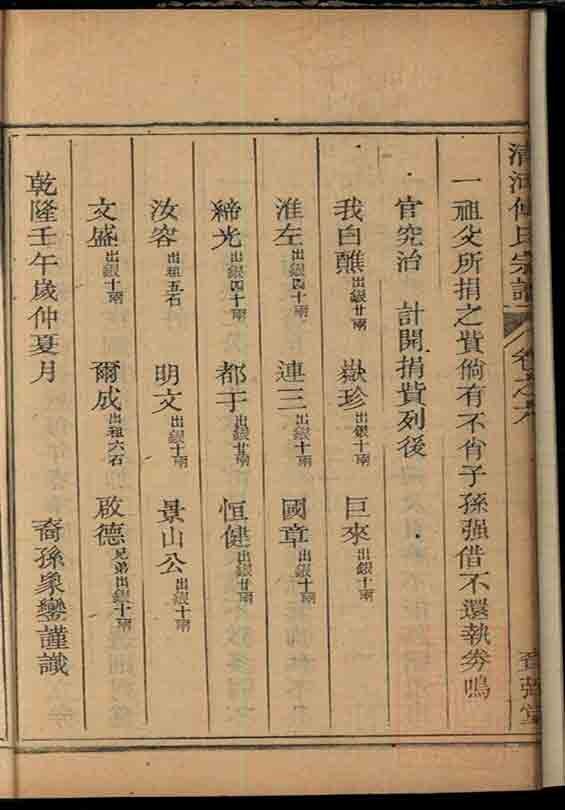 清河傅氏宗譜 卷之六
一祖父所捐之貲倘有不肖子孫强借不還執券鳴
官究治 計開捐貲列後
我白醮出銀廿兩 嶽珍出銀十兩 巨來出銀十兩
淮左出銀四十兩 連三出銀十兩 國章出銀十兩
締光出銀四十兩 都于出銀廿兩 恒健出銀廿兩
汝容出租五石 明文出銀十兩 景山公出銀十兩
文盛出銀十兩 爾成出租六石 啟德兄弟出銀十兩
乾隆壬午歲仲夏月 裔孫象巒謹識